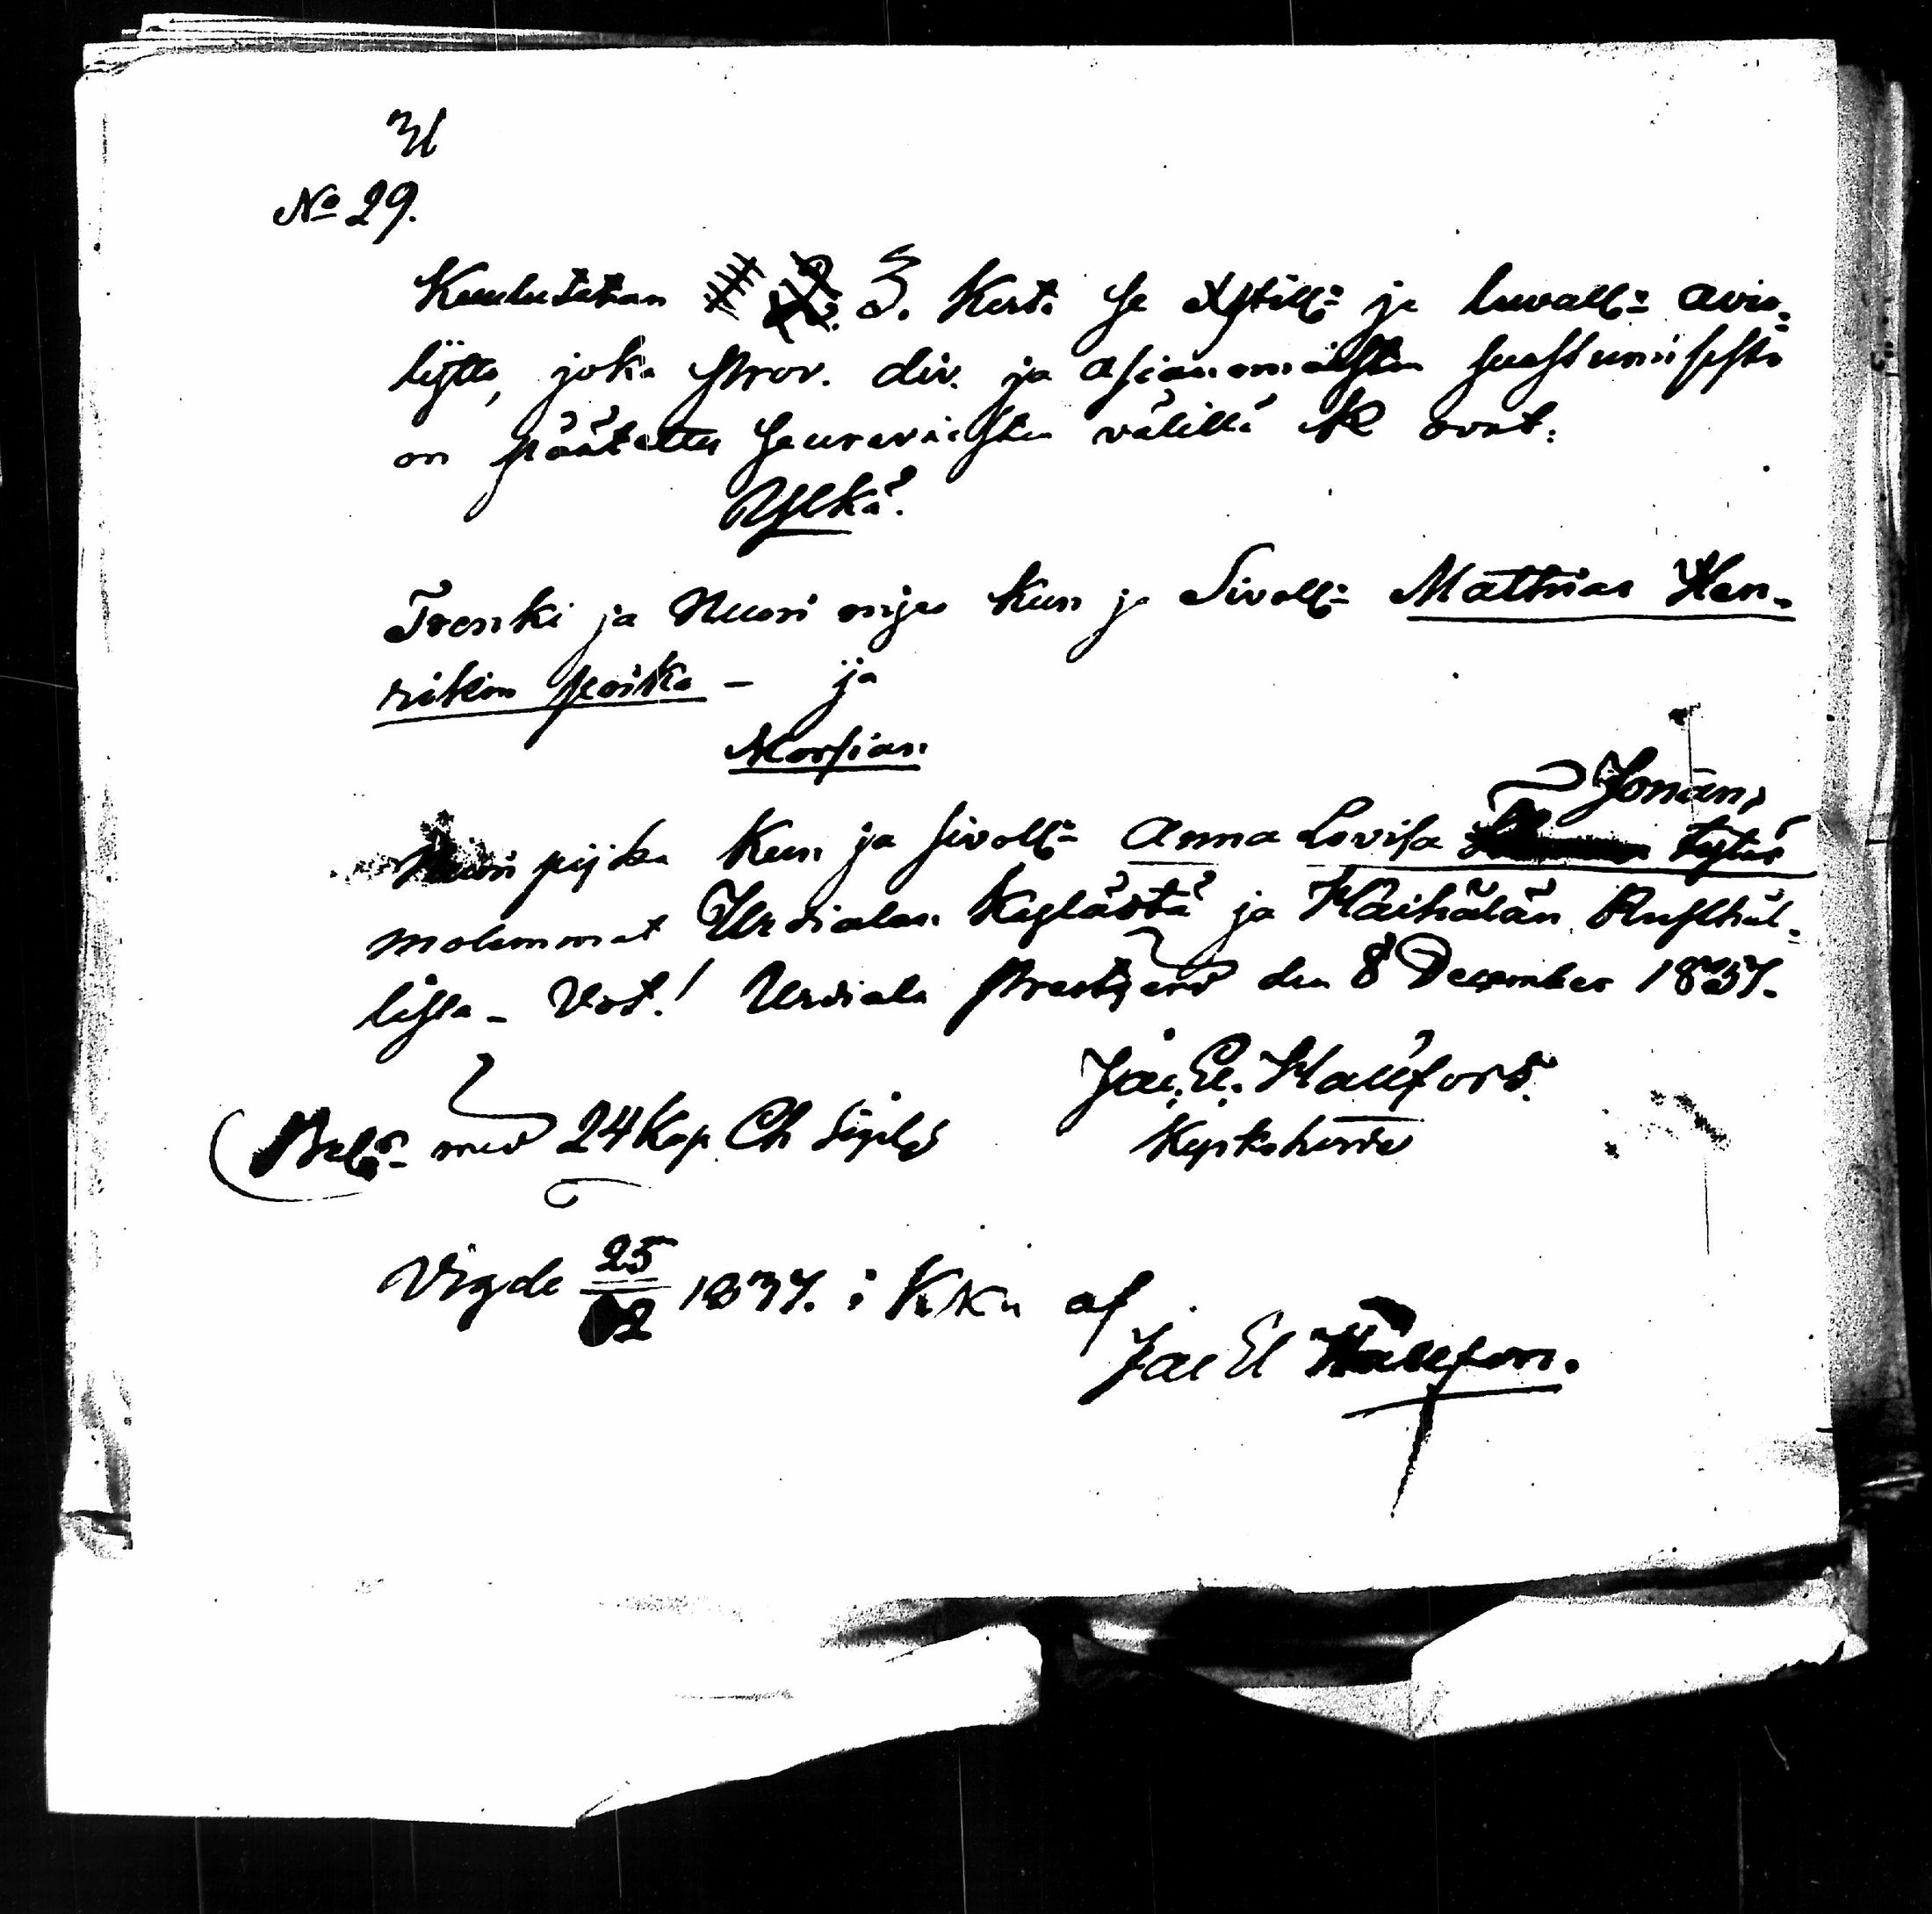 No 29.
Kuulutetaan 3. Kert. se Xstill: ja luvall: avio-
lijtto, joka prov. div. ja asianomaisten suostumisesta
on päätettu seuravaisten välillä N ovat:
Ylkä
Trenki ja Nuori mijes Kun ja Sivoll: Mathias Hen-
rikin poika - ja
Morsian
Jonan,
Nuori pijka Kun ja sivoll: Anna Lovisa tytär
molemmat Urdialan Kylästä ja Käihälän Rusthål-
lissa - Vot! Urdiala Prestgård den 8 December 1837.
Jac. El. Hallfors.
Kyrkoherde
Bel: med 24 Kop. Ch Sigild
Vigde 25/12 1837. i Kku af
Jac El Hallfors.